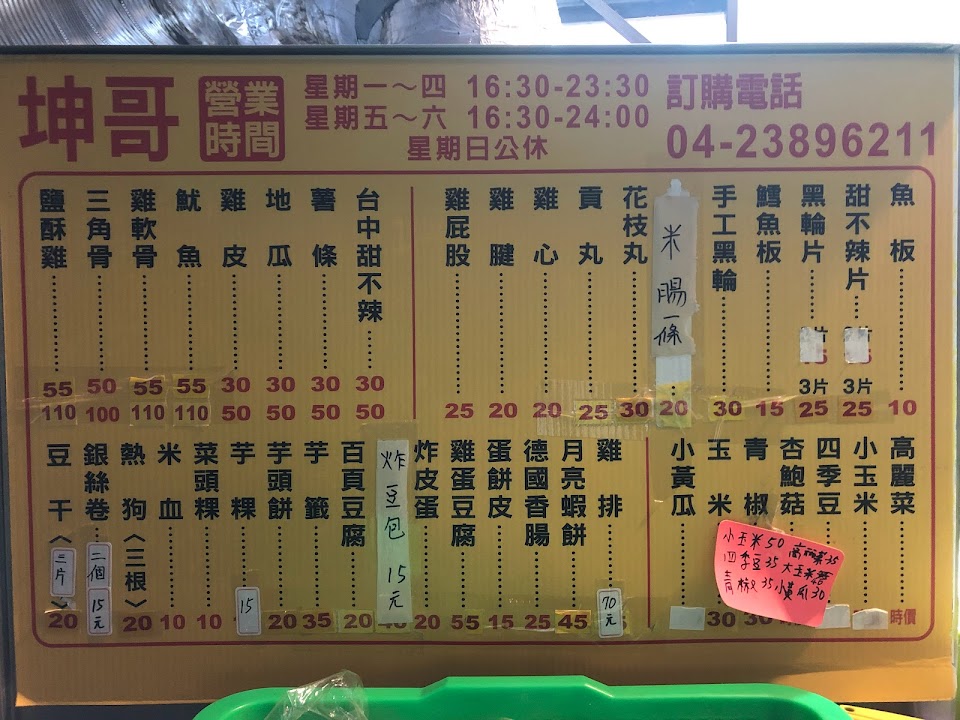 坤哥
營業時間
星期一～四 16:30-23:30
星期五～六 16:30-24:00
星期日公休
訂購電話
04-23896211
鹽酥雞 55 110
三角骨 50 100
雞軟骨 55 110
魷魚 55 110
雞皮 30 50
地瓜 30 50
薯條 30 50
台中甜不辣 30 50
雞屁股 25
雞腱 20
雞心 20
貢丸 25
花枝丸 30
米腸一條 20
手工黑輪 30
鱈魚板 15
黑輪片 3片 25
甜不辣片 3片 25
魚板 10
豆干〈三片〉 20
銀絲卷 二個 15元
熱狗〈三根〉 20
米血 10
菜頭粿 10
芋粿 15
芋頭餅 20
芋籤 35
百頁豆腐 20
炸豆包 15元
炸皮蛋 20
雞蛋豆腐 55
蛋餅皮 15
德國香腸 25
月亮蝦餅 45
雞排 70元
小黃瓜
玉米 30
青椒 30
杏鮑菇
四季豆
小玉米
高麗菜 時價
小玉米50 高麗菜35
四季豆35 大玉米
青椒35 小黃瓜30